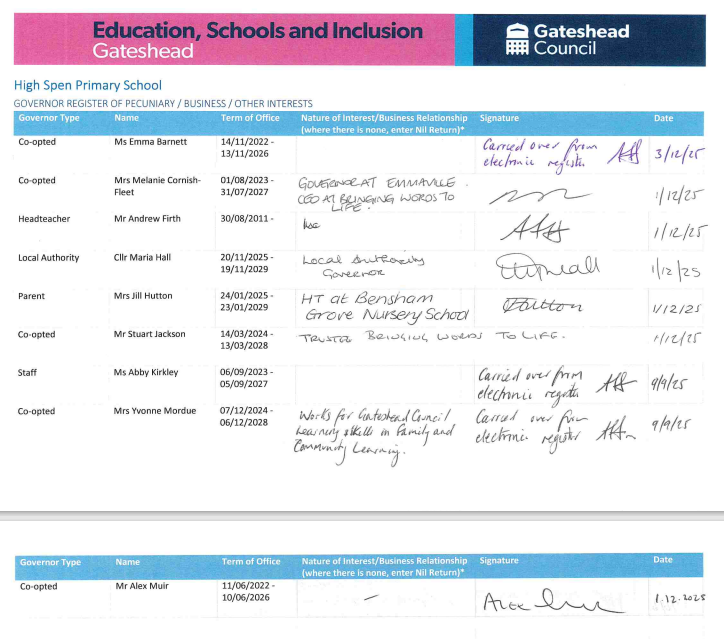 Education, Schools and Inclusion
Gateshead
Gateshead
Council
High Spen Primary School
GOVERNOR REGISTER OF PECUNIARY / BUSINESS / OTHER INTERESTS
Governor Type Name Term of Office Nature of Interest/Business Relationship (where there is none, enter Nil Return)* Signature Date
Co-opted Ms Emma Barnett 14/11/2022 - 13/11/2026 Carried over from electronic register 3/12/25
Co-opted Mrs Melanie Cornish-Fleet 01/08/2023 - 31/07/2027 GOVERNOR AT EMMAVILLE. CEO AT BRINGING WORDS TO LIFE. 1/12/25
Headteacher Mr Andrew Firth 30/08/2011 - 1/12/25
Local Authority Cllr Maria Hall 20/11/2025 - 19/11/2029 Local Authority Governor 1/12/25
Parent Mrs Jill Hutton 24/01/2025 - 23/01/2029 HT at Bensham Grove Nursery School JHutton 1/12/25
Co-opted Mr Stuart Jackson 14/03/2024 - 13/03/2028 TRUSTEE BRINGING WORDS TO LIFE. 1/12/25
Staff Ms Abby Kirkley 06/09/2023 - 05/09/2027 Carried over from electronic register 9/9/25
Co-opted Mrs Yvonne Mordue 07/12/2024 - 06/12/2028 Works for Gateshead Council Learning skills in Family and Community Learning. Carried over from electronic register 9/9/25
Governor Type Name Term of Office Nature of Interest/Business Relationship (where there is none, enter Nil Return)* Signature Date
Co-opted Mr Alex Muir 11/06/2022 - 10/06/2026 — Alex 1.12.2025